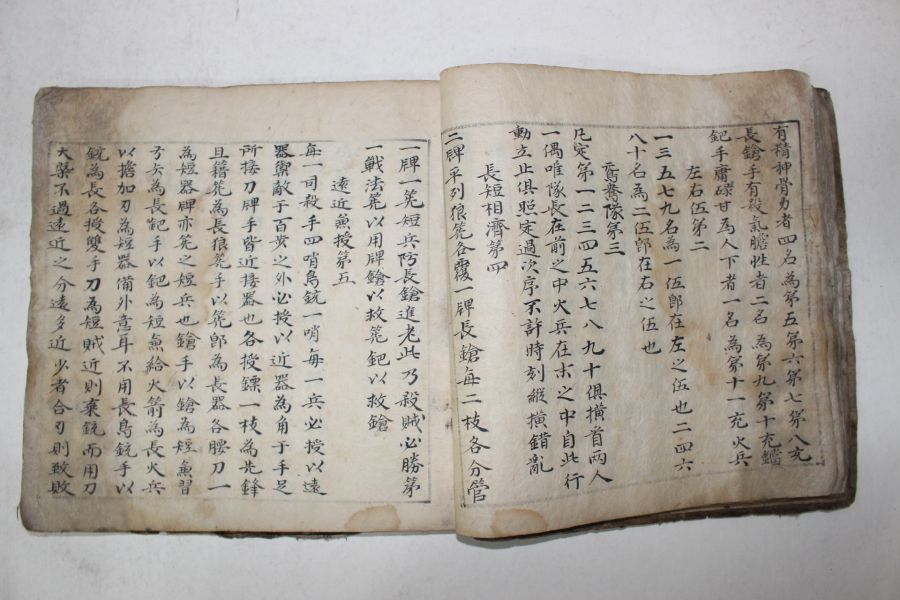 有精神骨力者四名為第五第六第七第八充
長鎗手有殺氣膽性者二名為第九第十充鎲
鈀手庸碌甘為人下者一名為第十一充火兵
左右伍第二
一三五七九名為一伍卽在左之伍也二四六
八十名為二伍卽在右之伍也
鴛鴦隊第三
凡定第一二三四五六七八九十俱橫首兩人
一偶唯隊長在前之中火兵在末之中自此行
動立止俱照定過次序不許時刻縱橫錯亂
長短相濟第四
二牌平列狼筅各覆一牌長鎗每二枝各分管
一牌一筅短兵防長鎗進老此乃殺賊必勝第
一戰法筅以用牌鎗以救筅鈀以救鎗
遠近兼授第五
每一司殺手四哨鳥銃一哨每一兵必授以遠
器禦敵于百步之外必授以近器為角于手足
所接刀牌手皆近接器也各授鏢一枝為先鋒
且籍筅為長狼筅手以筅卽為長器各腰刀一
為短器牌亦筅之短兵也鎗手以鎗為短兼習
弓矢為長鈀手以鈀為短兼給火箭為長火兵
以擔加刃為短器備外意耳不用長鳥銃手以
銃為長各授雙手刀為短賊近則棄銃而用刀
大槩不過遠近之分遠多近少者合刃則致敗